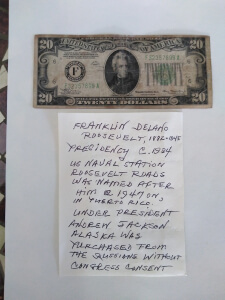 20
20
F
20
TWENTY DOLLARS
20
FRANKLIN DELANO
ROOSEVELT, 1882-1945
PRESIDENCY C. 1934
US NAVAL STATION
ROOSEVELT ROADS
WAS NAMED AFTER
HIM @ 1947 ON
IN PUERTO RICO.
UNDER PRESIDENT
ANDREW JACKSON
ALASKA WAS
PURCHASED FROM
THE RUSSIONS WITHOUT
CONGRESS CONSENT